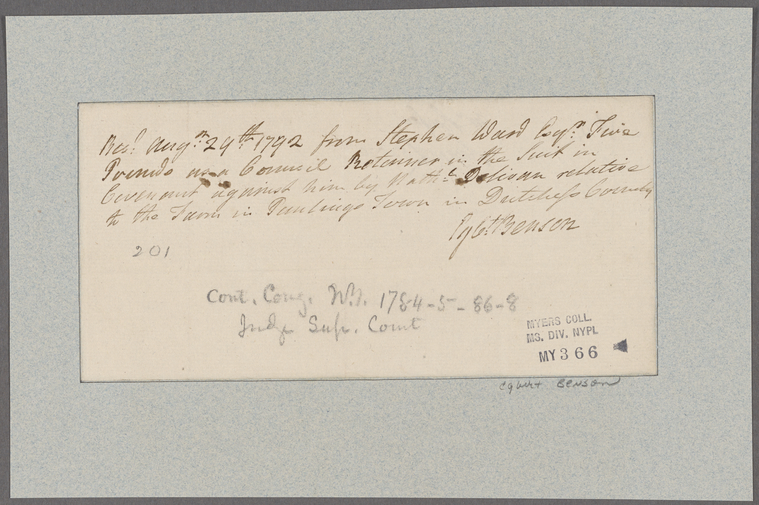 Recd. Augst. 29th. 1792 from Stephen Ward Esqr. Five
Pounds as a Council Retainer in the Suit in
Covenant against him by Nathl. Delivan relative
to the Farm in Pawlings Town in Dutchess County
Egbt. Benson
201
Cont. Cong. N.Y. 1784-5-86-8
Judge Sup. Court
MYERS COLL.
MS. DIV. NYPL
MY 366
Egbert Benson